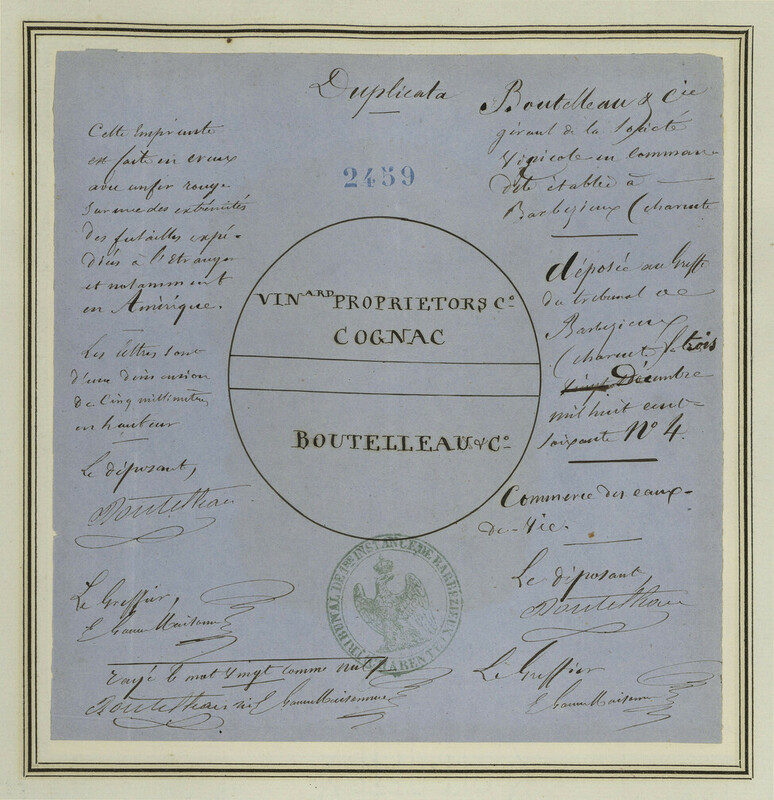 Duplicata
2459
Cette Empreinte
est faite en creux
avec un fer rouge
sur une des extrémités
des futailles expé-
diées à l'Etranger
et notamment
en Amérique.
Les lettres sont
d'une dimension
de Cinq millimètres
en hauteur
Le déposant,
Boutelleau
Le Greffier,
VINARD PROPRIETORS Co
COGNAC
BOUTELLEAU & Co
TRIBUNAL DE 1re INSTANCE DE BARBEZIEUX
CHARENTE
Boutelleau & Cie
gérant de la Société
Vinicole en comman-
dite établie à
Barbezieux (Charente
déposée au Greffe
du tribunal de
Barbezieux
(Charente) le trois
vingt Décembre
mil huit cent
soixante No 4.
Commerce des eaux-
de-Vie.
Le déposant
Boutelleau
Le Greffier
Rayé le mot vingt comme nul
Boutelleau